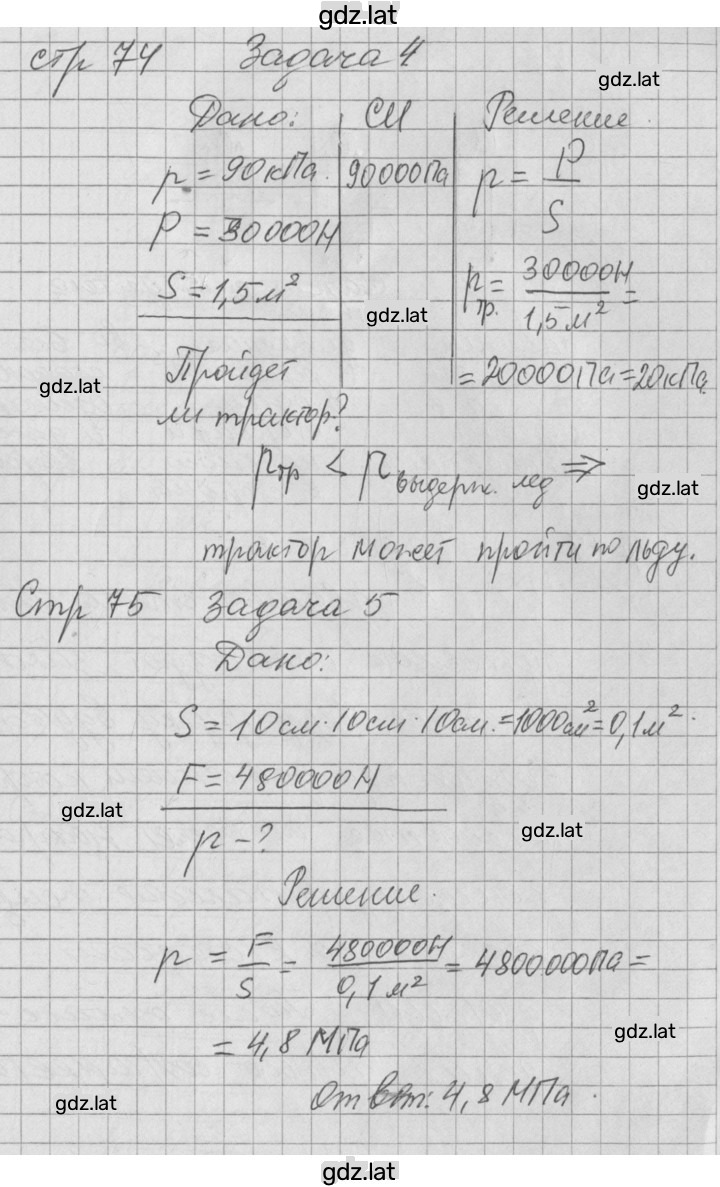 gdz.lat
стр 74 Задача 4
gdz.lat
Дано: СИ Решение.
p = 90 кПа. 90000Па p = P/S
P = 30000Н
S = 1,5 м² pтр. = 30000Н/1,5 м² =
gdz.lat
Пройдет = 20000Па = 20кПа.
gdz.lat
ли трактор?
pтр < pвыдерж. лед ⇒
gdz.lat
трактор может пройти по льду.
Стр 75 Задача 5
Дано:
S = 10см · 10см · 10см. = 1000см² = 0,1м².
F = 480000Н
gdz.lat
p - ?
gdz.lat
Решение.
p = F/S = 480000Н/0,1 м² = 4800000Па =
= 4,8 МПа
gdz.lat
Ответ: 4,8 МПа.
gdz.lat
gdz.lat